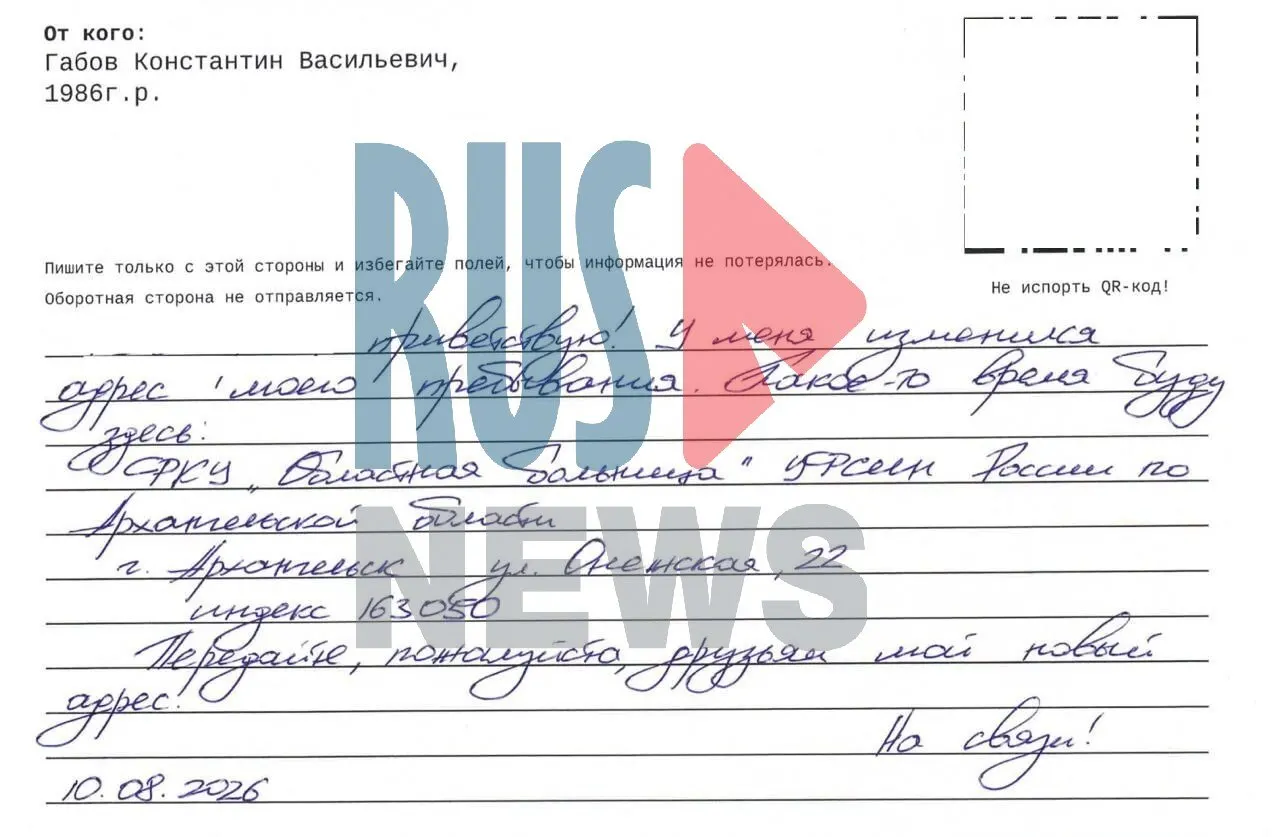 От кого:
Габов Константин Васильевич,
1986г.р.
Пишите только с этой стороны и избегайте полей, чтобы информация не потерялась.
Оборотная сторона не отправляется.
Не испорть QR-код!
приветствую! У меня изменился
адрес моего пребывания. Какое-то время буду
здесь:
ФКУ „Областная больница" УФСИН России по
Архангельской области
г. Архангельск ул. Онежская, 22
индекс 163050
Передайте, пожалуйста, друзьям мой новый
адрес.
На связи!
10.08.2026
RUS
NEWS